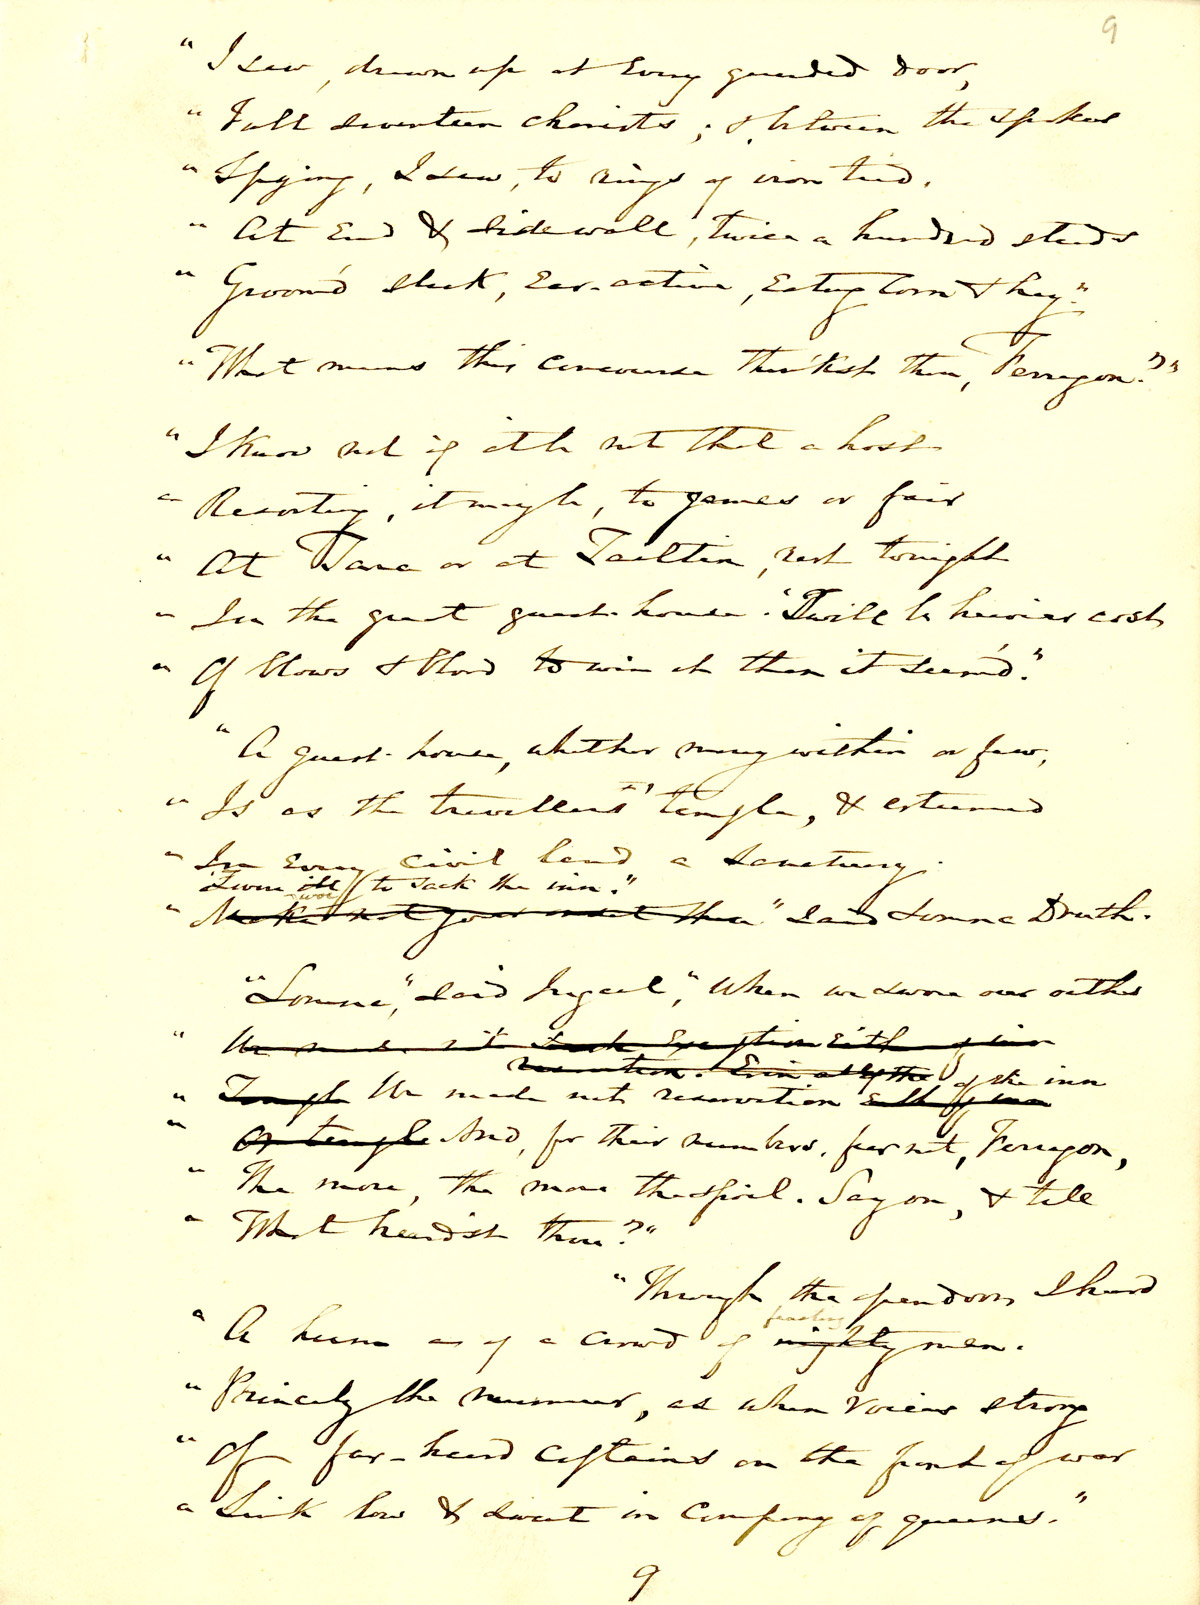 9
"I saw, drawn up at every guarded door,
"Full seventeen chariots; & between the spokes
"Spying, I saw, to rings of iron tied,
"At End & Side wall, twice a hundred steeds
"Groom'd sleek, Ear-active, Eating Corn & hay."
"What means this concourse think'st thou, Ferragon?""
"I Know not if it be not that a host
"Resorting, it may be, to games or fair
"At Tara or at Tailtin, rest tonight
"In the great guest-house. 'Twill be heavier cost
"Of blows & blood to win it than it seem'd."
"A guest-house, whether many within or few,
"Is as the travellers' temple, & esteemed
"In Every civil land a Sanctuary.
'Twere ill woe to sack the inn."
"Make not your onset there" said Lomna Druth.
"Lomna," said Ingcel, "When we swore our oaths
"We made not such Exception Either of inn
reservation. Even at of the of the inn
"Temple We made not reservation Either of inn
"Or temple And, for their numbers, fear not, Ferragon,
"The more, the more the spoil. Say on, & tell
"What heard'st thou?"
"Through the open doors I heard
feasting
"A hum as of a crowd of mighty men.
"Princely the murmur, as when voices strong
"Of far-heard Captains on the front of war
"Sink low & sweet in Company of queens."
9